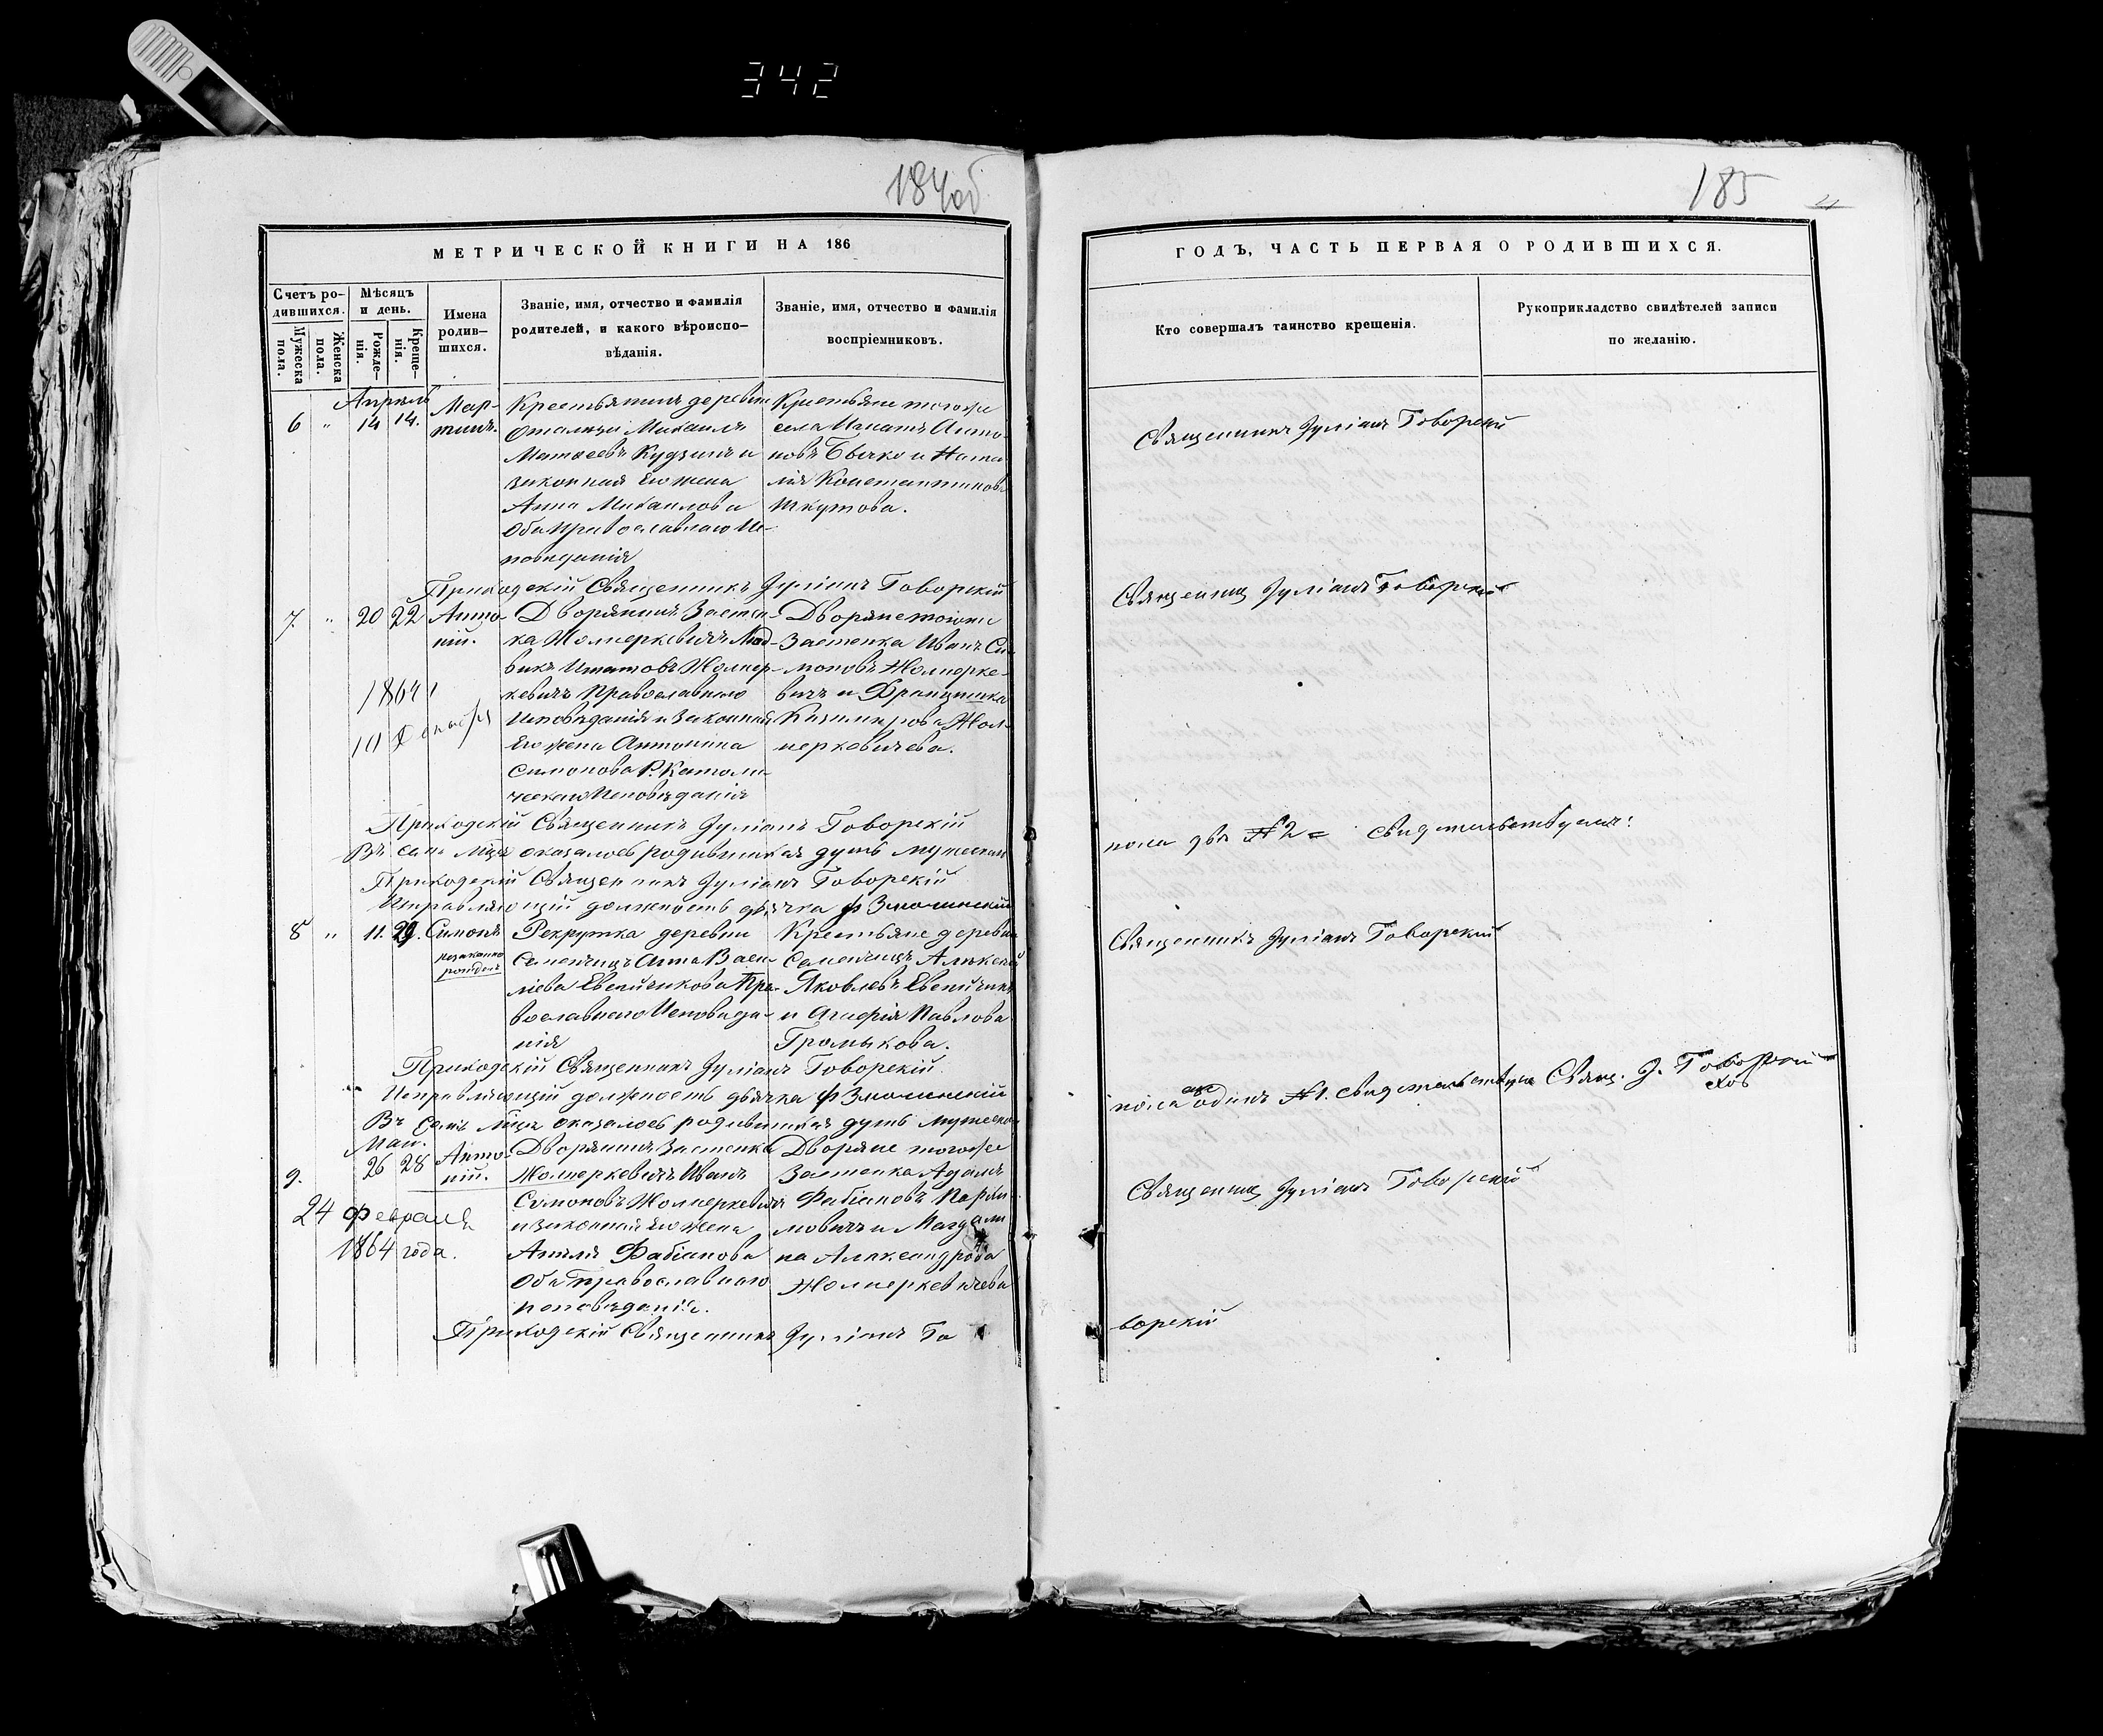 342
184 об
185
МЕТРИЧЕСКОЙ КНИГИ НА 186
ГОДЪ, ЧАСТЬ ПЕРВАЯ О РОДИВШИХСЯ.
Счетъ ро-
дившихся.
Мужеска
пола.
Женска
пола.
Мѣсяцъ
и день.
Рожде-
нія.
Креще-
нія.
Имена
родив-
шихся.
Званіе, имя, отчество и фамилія
родителей, и какого вѣроиспо-
вѣданія.
Званіе, имя, отчество и фамилія
воспріемниковъ.
Кто совершалъ таинство крещенія.
Рукоприкладство свидѣтелей записи
по желанію.
Апрѣль
6 " 14 14.
Мар-
тинъ.
Крестьянинъ деревни
Михаилъ
Матѳеевъ Кудзинъ и
законная его жена
Анна Михаилова
Оба Православнаго Ис-
повѣданія
Крестьяне тогоже
села Игнатъ Анто-
новъ Бычко и Ната-
лія Константинова
Шкутова.
Священникъ Іуліанъ Говорскій
Приходскій Священникъ Іуліанъ Говорскій
7 " 20 22
Анто-
ній.
Дворянинъ Застѣн-
ка Жолнеркевичъ Люд-
викъ Игнатовъ Жолнер-
кевичъ Православнаго
Исповѣданія и Законная
Его жена Антонина
Симонова Р. Католи-
ческаго Исповѣданія
Дворяне тогоже
Застенка Иванъ Си-
моновъ Жолнерке-
вичъ и Францишка
Казимирова Жол-
неркевичева.
1864
10
Священникъ Іуліанъ Говорскій
Приходскій Священникъ Іуліанъ Говорскій
Въ семъ Мцѣ оказалось родившихся душъ мужеска
пола два № 2 = свидѣтельствуемъ:
Приходскій Священникъ Іуліанъ Говорскій
Исправляющій должность дьячка Ф
8 " 11. 29.
Симонъ
незаконно
рожденъ
Рекрутка деревни
Семенчицъ Анна Васи-
лієва Евсейчикова Пра-
вославнаго Исповѣда-
нія
Крестьяне деревни
Семенчицъ Алексѣй
Яковлевъ Евсейчикъ
и Агафія Павлова
Громыкова.
Священникъ Іуліанъ Говорскій
Приходскій Священникъ Іуліанъ Говорскій.
Исправляющій должность дьячка Ф
Въ семъ Мцѣ оказалось родившихся душъ мужеска
пола одинъ № 1. свидѣтельствуемъ Свящ. І. Говорскій
Маи.
9. 26 28
Анто-
ній.
Дворянинъ Застенка
Жолнеркевичъ Иванъ
Симоновъ Жолнеркевичъ
и Законная Его жена
Анеля Фабіанова
Оба Православнаго
исповѣданія.
Дворяне тогоже
Застенка Адамъ
Фабіановъ
и Магдали-
на Александрова
Жолнеркевичева
24 Февраля
1864 года.
Священникъ Іуліанъ Говорскій
Приходскій Священникъ Іуліанъ Го
ворскій